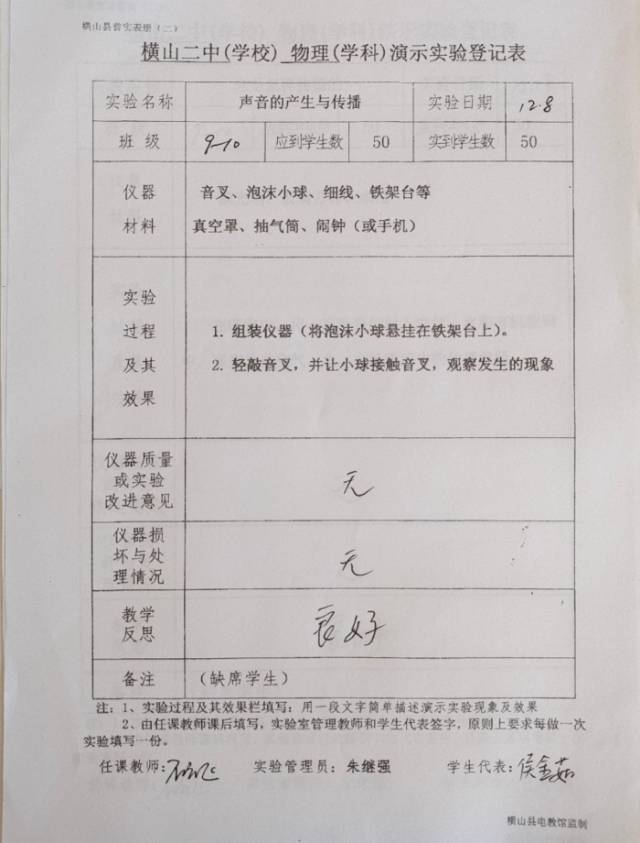 横山县普实表册（二）
横山二中(学校) 物理(学科)演示实验登记表
实验名称 声音的产生与传播 实验日期 12.8
班 级 9-10 应到学生数 50 实到学生数 50
仪器 音叉、泡沫小球、细线、铁架台等
材料 真空罩、抽气筒、闹钟（或手机）
实验
过程 1. 组装仪器（将泡沫小球悬挂在铁架台上）。
及其 2. 轻敲音叉，并让小球接触音叉，观察发生的现象
效果
仪器质量
或实验 无
改进意见
仪器损
坏与处 无
理情况
教学 良好
反思
备注 （缺席学生）
注：1、实验过程及其效果栏填写：用一段文字简单描述演示实验现象及效果
2、由任课教师课后填写，实验室管理教师和学生代表签字，原则上要求每做一次
实验填写一份。
任课教师: 实验管理员：朱继强 学生代表: 侯金茹
横山县电教馆监制